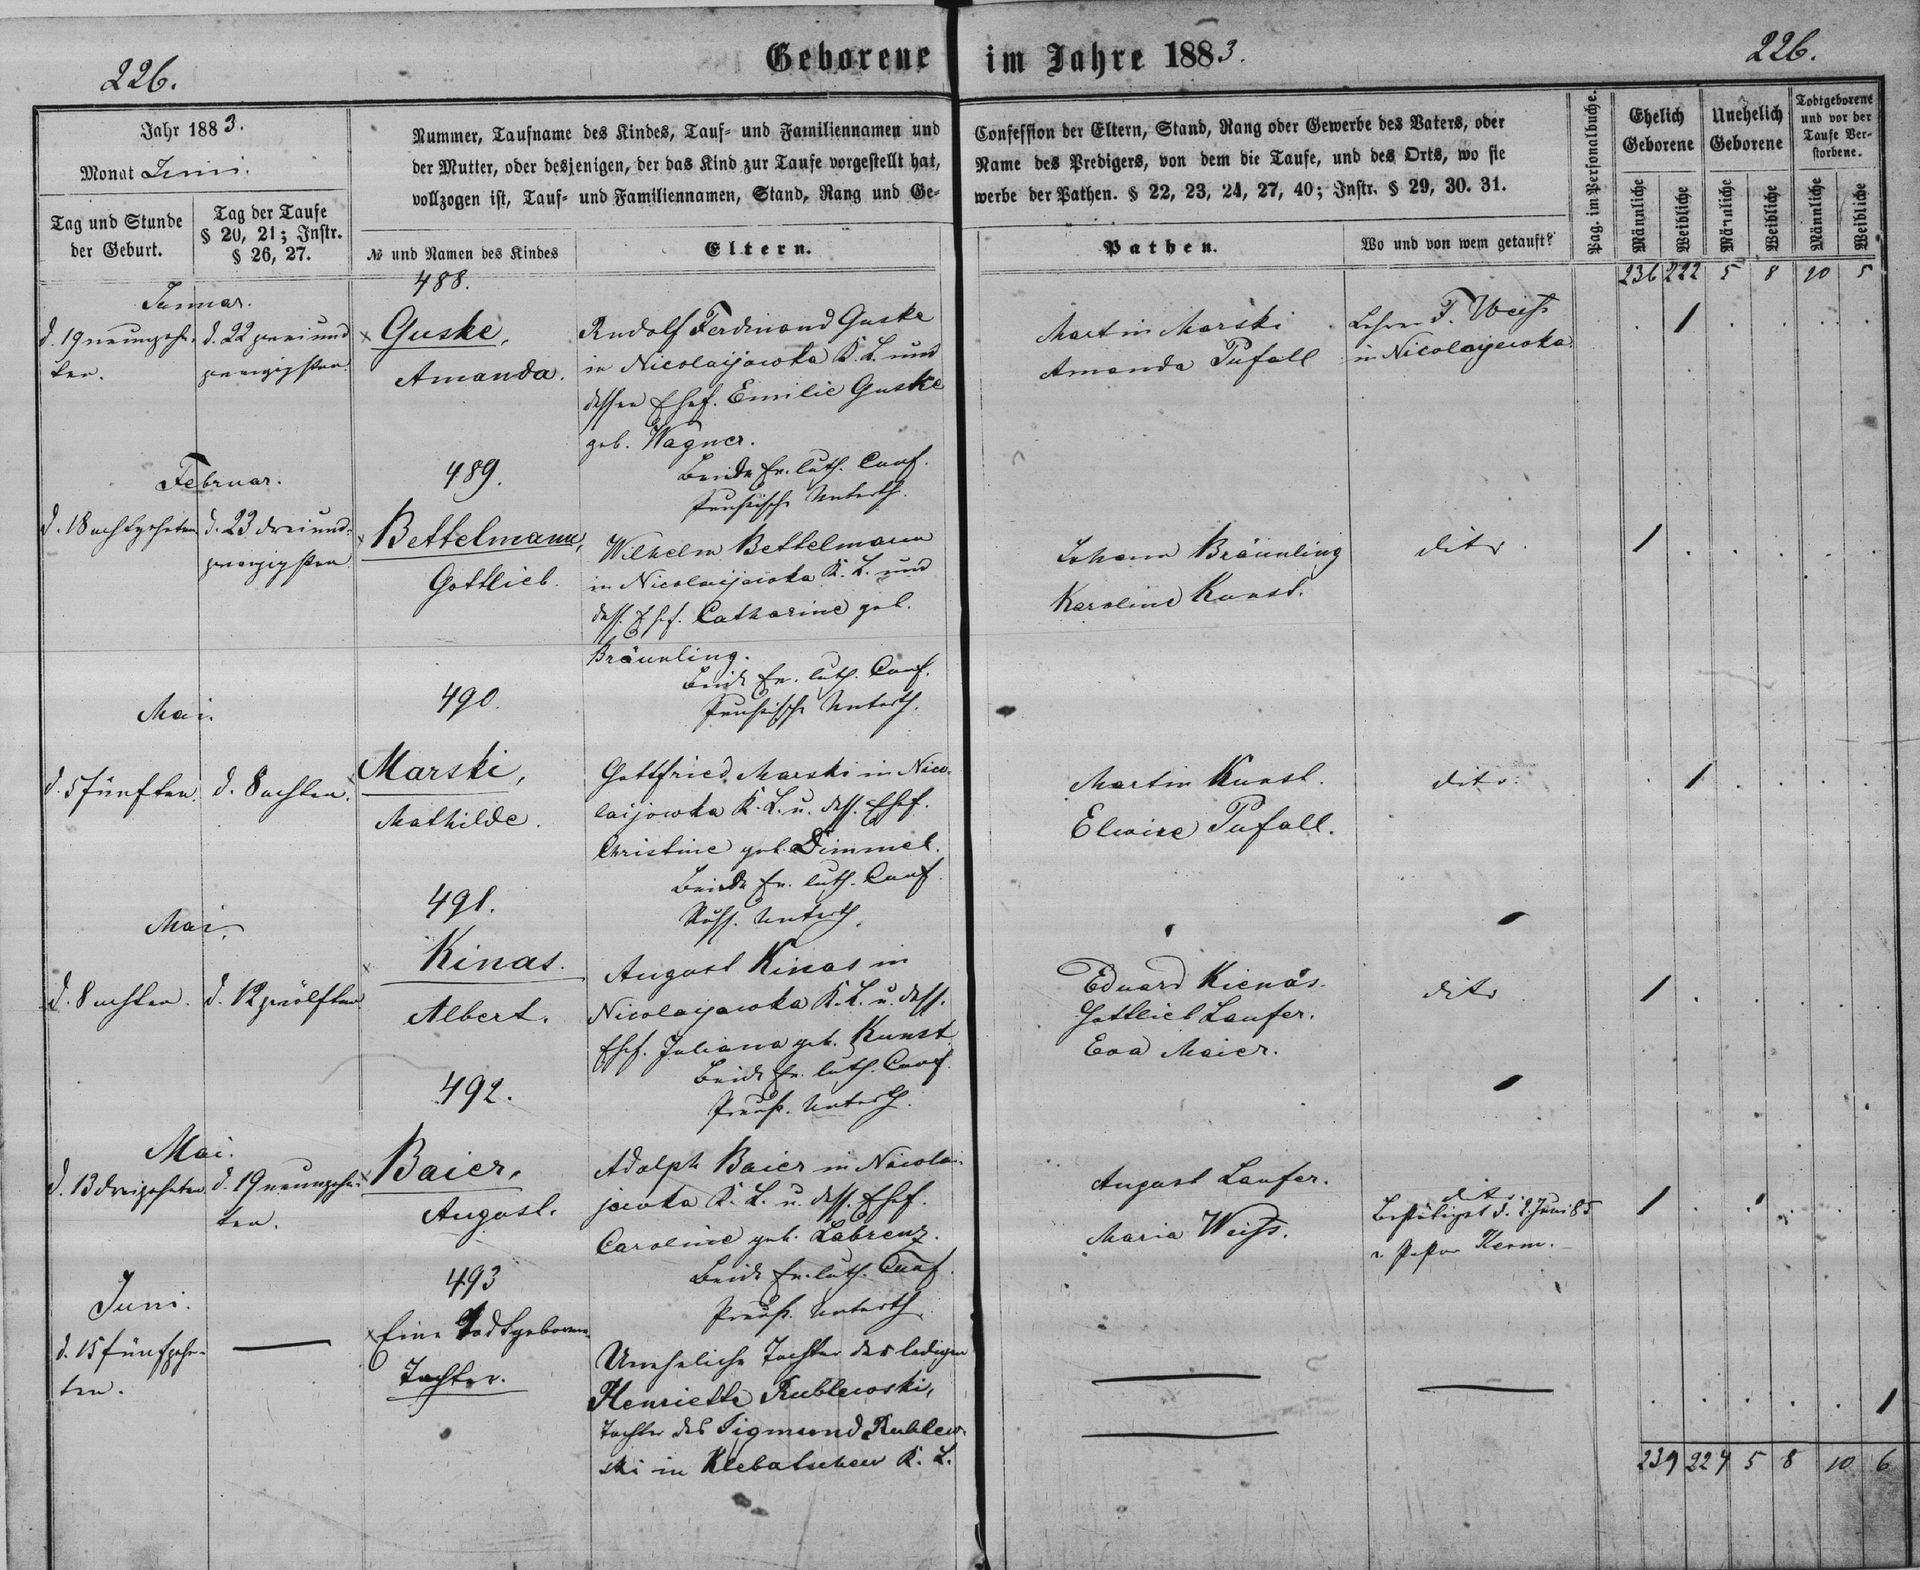 226.
Geborene im Jahre 1883.
226.
Jahr 1883.
Monat Juni.
Tag und Stunde der Geburt.
Tag der Taufe § 20, 21; Instr. § 26, 27.
Nummer, Taufname des Kindes, Tauf- und Familiennamen und
der Mutter, oder desjenigen, der das Kind zur Taufe vorgestellt hat,
vollzogen ist, Tauf- und Familiennamen, Stand, Rang und Ge-
№ und Namen des Kindes
Eltern.
Confession der Eltern, Stand, Rang oder Gewerbe des Vaters, oder
Name des Predigers, von dem die Taufe, und des Orts, wo sie
werbe der Pathen. § 22, 23, 24, 27, 40; Instr. § 29, 30. 31.
Pathen.
Wo und von wem getauft?
Pag. im Personalbuche.
Ehelich Geborene
Unehelich Geborene
Todtgeborene und vor der Taufe Ver-storbene.
Männliche
Weibliche
Männliche
Weibliche
Männliche
Weibliche
236 222 5 8 10 5
Januar.
d. 19 neunzehn-
ten.
d. 22 zweiund
zwanzigsten
488.
Guske,
Amanda.
Rudolf Ferdinand Guske
in Nicolaijowka K. L. und
dessen Ehef. Emilie Guske
geb. Wagner.
Beide Ev. luth. Conf.
Preußische Unterth.
Martin Marski
Amanda Pufall
Lehrer F. Weiß
in Nicolayewka
1
Februar.
d. 18 achtzehnten
d. 23 dreiund-
zwanzigsten
489.
Bettelmann,
Gottlieb.
Wilhelm Bettelmann
in Nicolaijowka K. L. und
dess. Ehef. Catharine geb.
Bräunling.
Beide Ev. luth. Conf.
Preußische Unterth.
Johann Bräunling
Karoline Kunst.
dito.
1
Mai.
d. 5 fünften.
d. 8 achten.
490.
Marski,
Mathilde.
Gottfried Marski in Nico-
laijowka K. L. u. dess. Ehef.
Christine geb. Dimmel.
Beide Ev. luth. Conf.
Russ. Unterth.
Martin Kunst.
Elwire Pufall.
dito.
1
Mai.
d. 8 achten.
d. 12 zwölften
491.
Kinas.
Albert.
August Kinas in
Nicolaijowka K. L. u. dess.
Ehef. Juliana geb. Kunst
Beide Ev. luth. Conf.
Preuß. Unterth.
Eduard Kienas.
Gottlieb Laufer.
Eva Maier.
dito
1
Mai.
d. 13 dreizehnten
d. 19 neunzehn-
ten.
492.
Baier,
August.
Adolph Baier in Nicolai-
jowka K. L. u. dess. Ehef.
Caroline geb. Labrenz.
Beide Ev. luth. Conf.
Preuß. Unterth.
August Laufer.
Maria Weiß.
dito
Bestätigt d. 2 Juni 85
v. Pastor
1
Juni.
d. 15 fünfzehn-
ten.
493
Eine Todtgeborene
Tochter.
Uneheliche Tochter der ledigen
Henriette Rublewski,
Tochter des Sigmund Rublew-
ski in K. L.
1
239 224 5 8 10 6